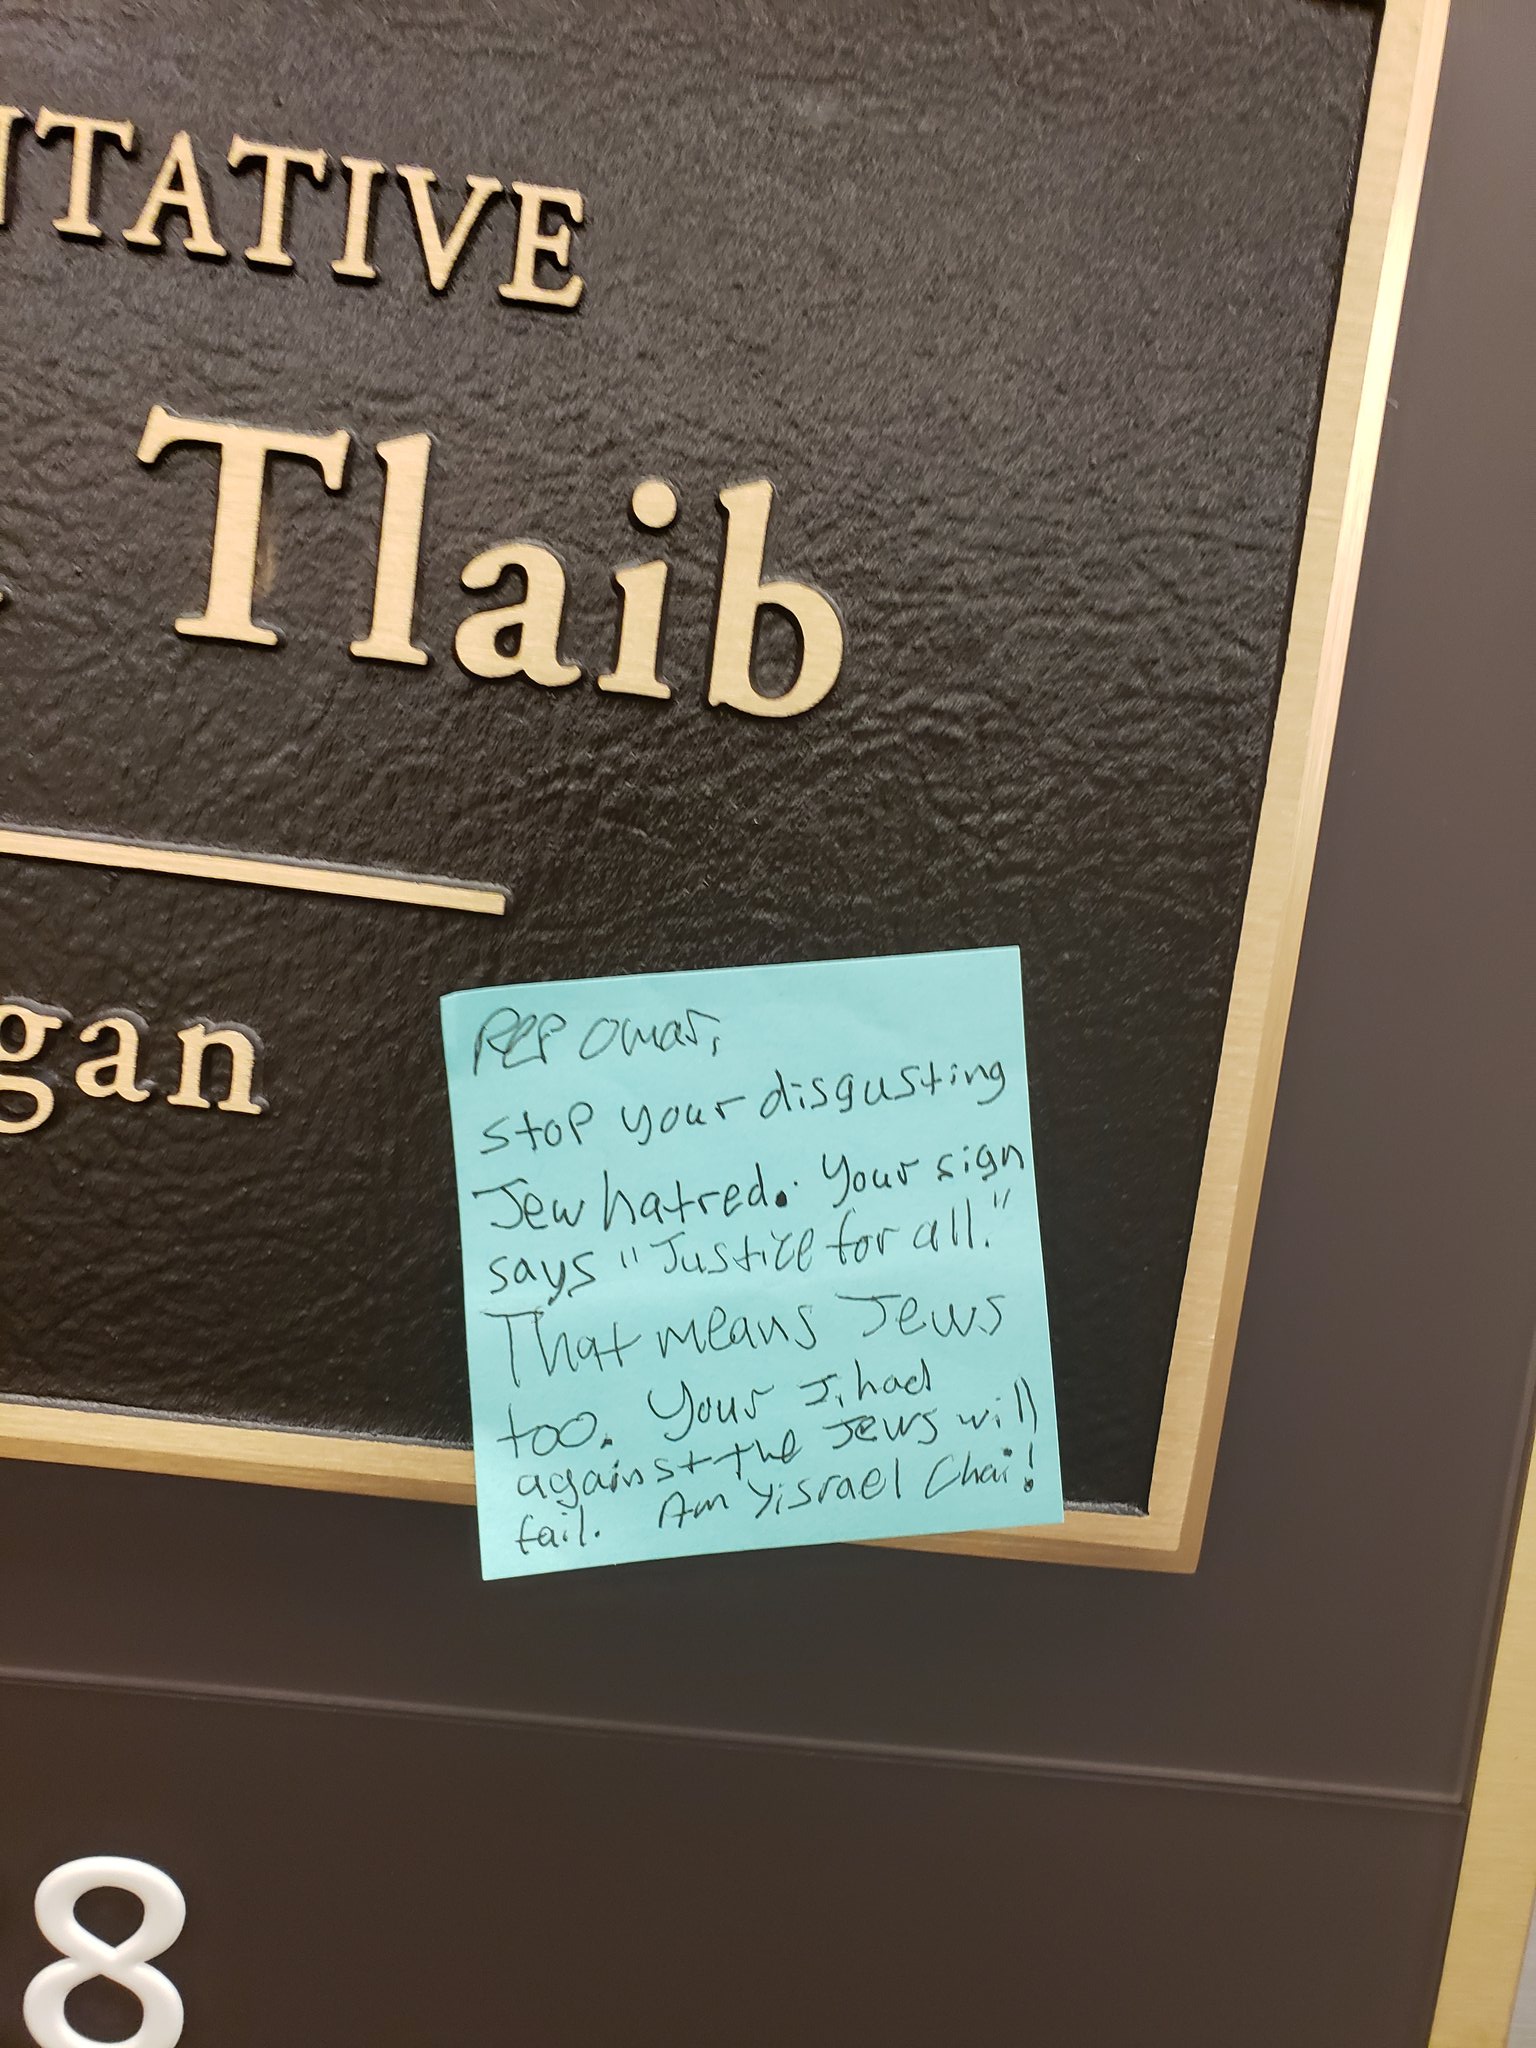 NTATIVE
Tlaib
gan
Rep Omar,
stop your disgusting
Jew hatred. Your sign
says "Justice for all."
That means Jews
too. Your Jihad
against the Jews will
fail. Am Yisrael Chai!
8